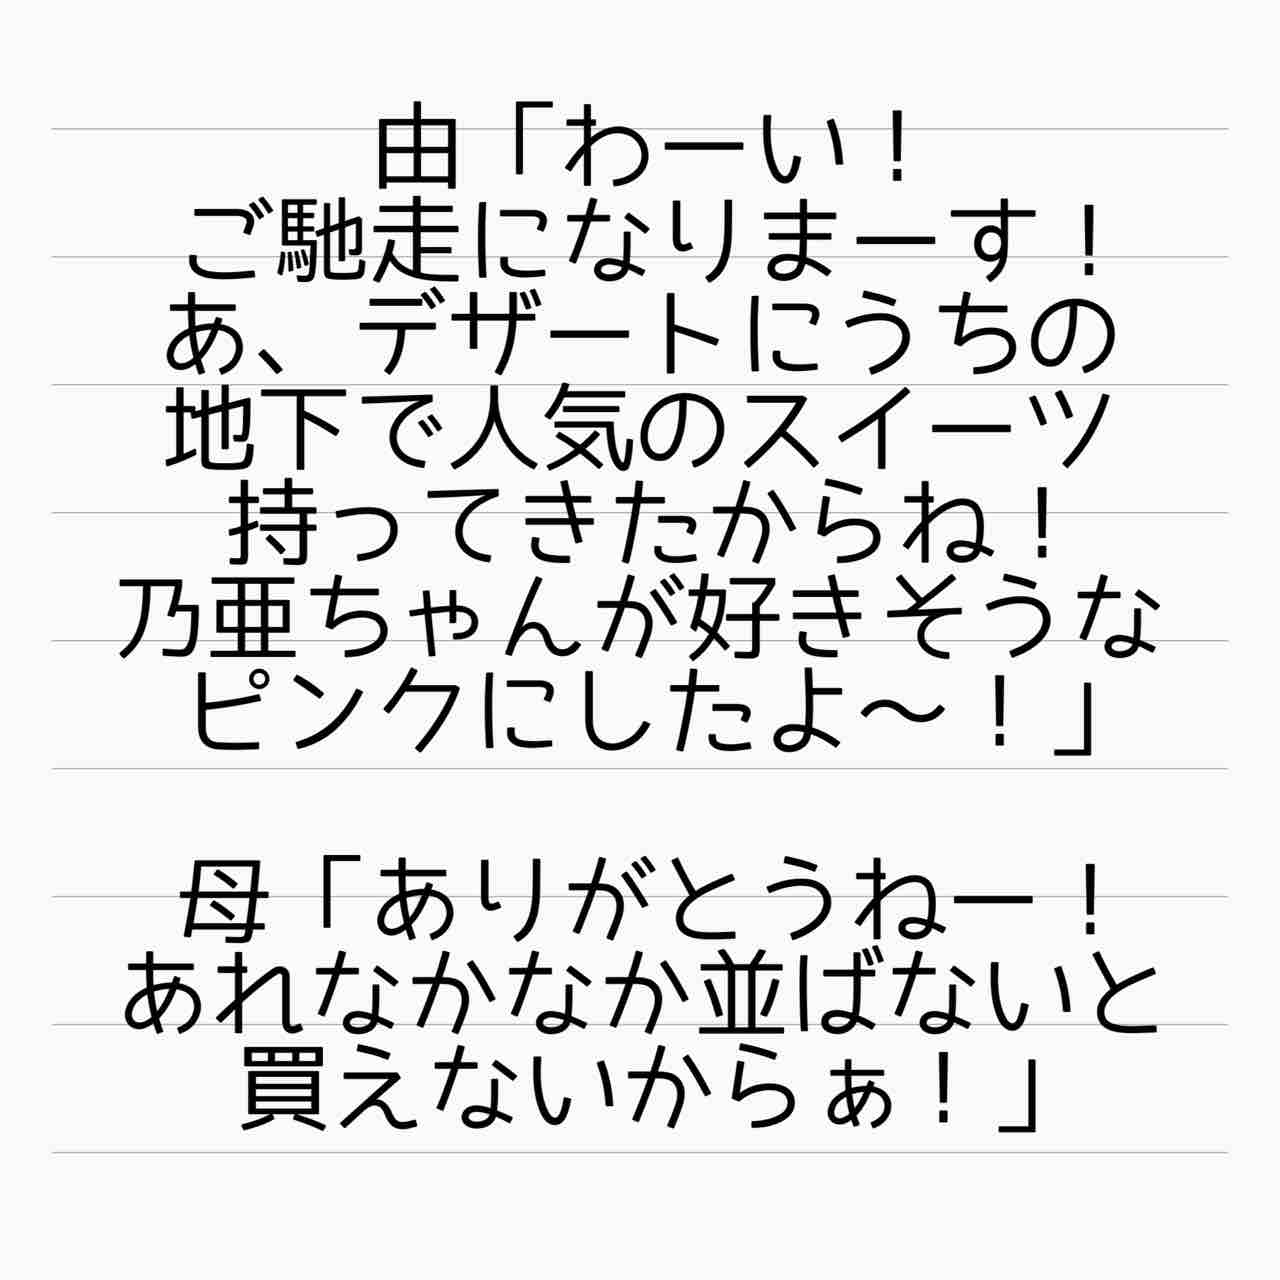 由「わーい！
ご馳走になりまーす！
あ、デザートにうちの
地下で人気のスイーツ
持ってきたからね！
乃亜ちゃんが好きそうな
ピンクにしたよ〜！」
母「ありがとうねー！
あれなかなか並ばないと
買えないからぁ！」